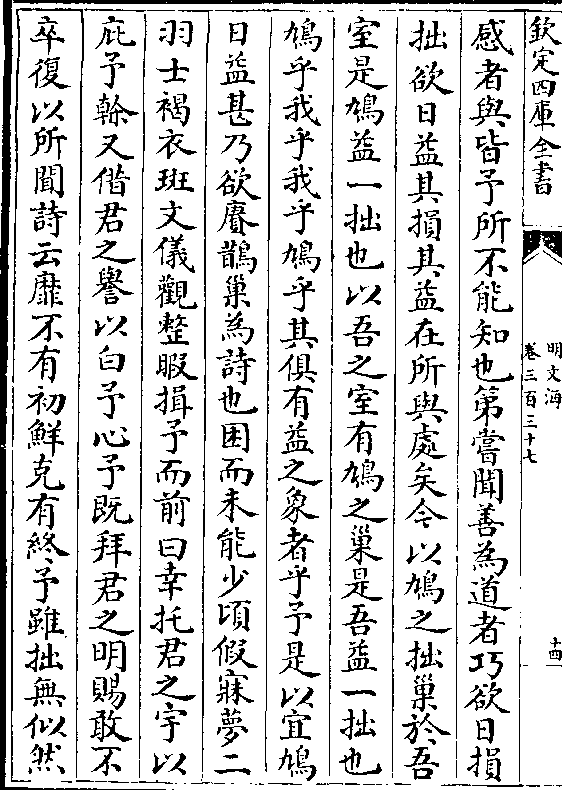 欽定四庫全書
明文海
卷三百三十七
十四
感者與皆予所不能知也第嘗聞善為道者巧欲日損
拙欲日益其損其益在所與處矣今以鳩之拙巢於吾
室是鳩益一拙也以吾之室有鳩之巢是吾益一拙也
鳩乎我乎我乎鳩乎其俱有益之象者乎予是以宜鳩
日益甚乃欲賡鵲巢為詩也困而未能少頃假寐夢二
羽士褐衣斑文儀觀整暇揖予而前曰幸托君之宇以
庇予翰又借君之譽以白予心予既拜君之明賜敢不
卒復以所聞詩云靡不有初鮮克有終予雖拙無似然